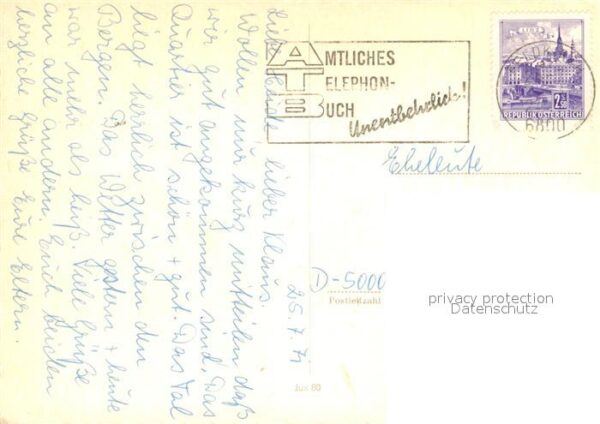 25.7.71
Liebe Edith, lieber Klaus.
Wollen nur kurz mitteilen daß
wir gut angekommen sind. Das
Quartier ist schön + gut. Das Tal
liegt herrlich zwischen den
Bergen. Das Wetter gestern + heute
war mehr als heiß. Viele Grüße
an alle andern. Euch beiden
herzliche Grüße Eure Eltern.
AMTLICHES
TELEPHON-
BUCH
Unentbehrlich!
6800
LINZ
2.50
REPUBLIK ÖSTERREICH
Eheleute
D-5000
Postleitzahl
Jux 80
privacy protection
Datenschutz